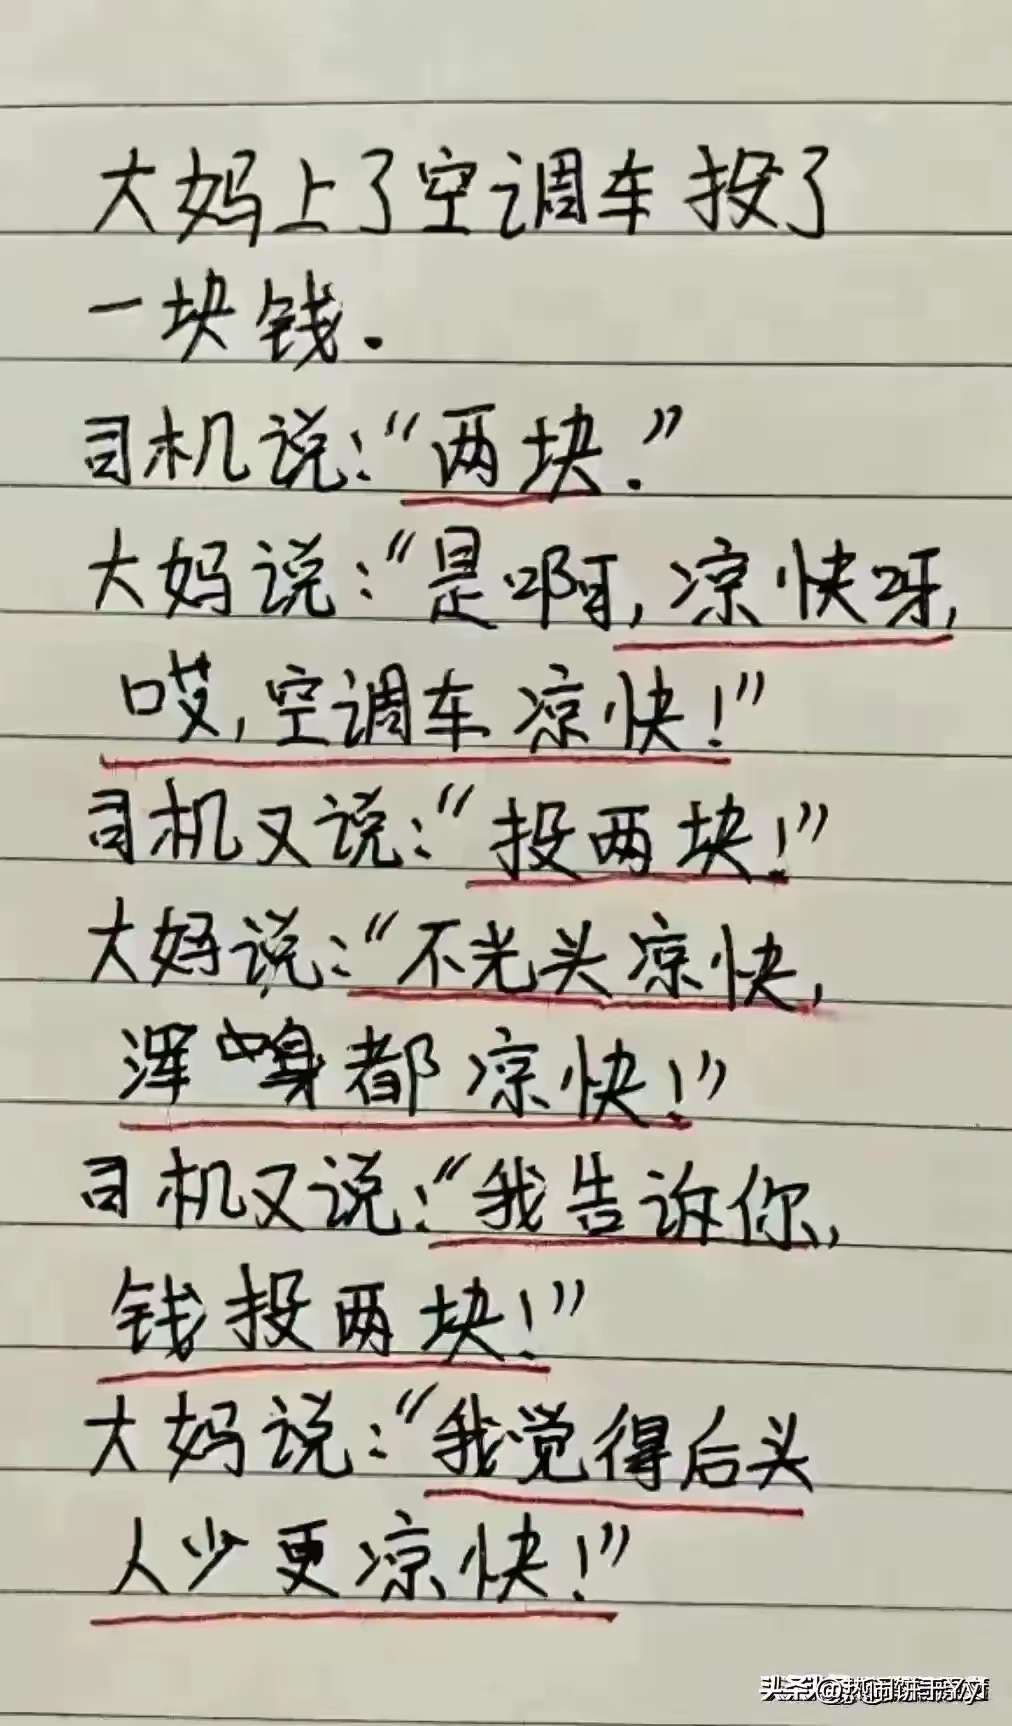 大妈上了空调车投了
一块钱.
司机说:“两块.”
大妈说:“是啊,凉快呀,
哎,空调车凉快!”
司机又说:“投两块!”
大妈说:“不光头凉快,
浑身都凉快!”
司机又说:“我告诉你,
钱投两块!”
大妈说:“我觉得后头
人少更凉快!”
头条